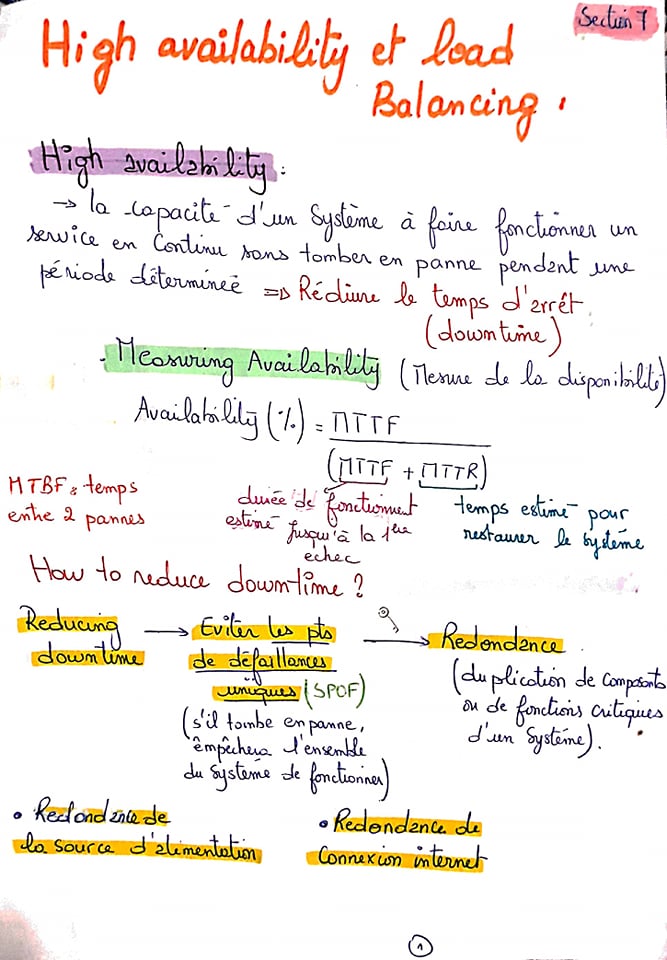 Section 7
High availability et load
Balancing.
High availability:
→ la capacité d'un système à faire fonctionner un
service en continu sans tomber en panne pendant une
période déterminée => Réduire le temps d'arrêt.
(downtime)
- Measuring Availability (Mesure de la disponibilité)
Availability (%) = MTTF
(MTTF + MTTR)
MTBF: temps
entre 2 pannes
durée de fonctionment
estimé jusqu'à la 1ère
echec
temps estimé pour
restaurer le système
How to reduce downtime?
Reducing
downtime
→ Eviter les pts
de défaillances
uniques (SPOF)
(s'il tombe en panne,
empêchera l'ensemble
du système de fonctionner)
→ Redondance
(duplication de composants
ou de fonctions critiques
d'un système).
• Redondance de
la source d'alimentation
• Redondance de
connexion internet
1